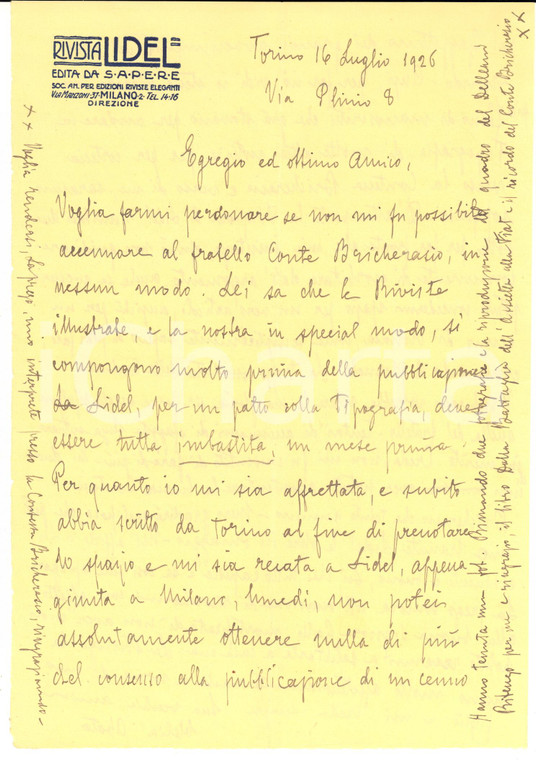 RIVISTA LIDEL
EDITA DA S·A·P·E·R·E
SOC. AN. PER EDIZIONI RIVISTE ELEGANTI
VIA MANZONI·37·MILANO·2·TEL. 14-16
DIREZIONE
Torino 16 Luglio 1926
Via Plinio 8
Egregio ed ottimo Amico,
Voglia farmi perdonare se non mi fu possibile
accennare al fratello Conte Bricherasio, in
nessun modo. Lei sa che le Riviste
illustrate, e la nostra in special modo, si
compongono molto prima della pubblicazione
Lidel, per un patto colla Tipografia, deve
essere tutta imbastita, un mese prima.
Per quanto io mi sia affrettata, e subito
abbia scritto da Torino al fine di prenotare
lo spazio e mi sia recata a Lidel, appena
giunta a Milano, lunedì, non potei
assolutamente ottenere nulla di più
del consenso alla pubblicazione di un cenno
x x Voglia rendersi, La prego, mio interprete presso la Contessa Bricherasio, ringraziando-
Hanno tenuta una fot. Rimando due fotografie e la riproduzione del quadro del Delleani
Ritengo per me e ringrazio, il libro della Battaglia dell'Assietta alla Viat e il ricordo del Conte Bricherasio,
x x
iCharta